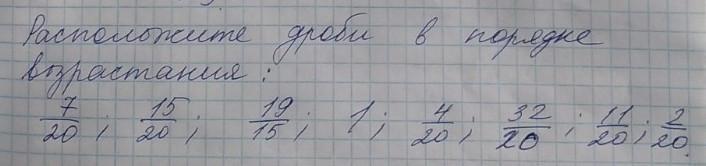 Расположите дроби в порядке
возрастания:
7/20; 15/20; 19/15; 1; 4/20; 32/20; 11/20; 2/20.